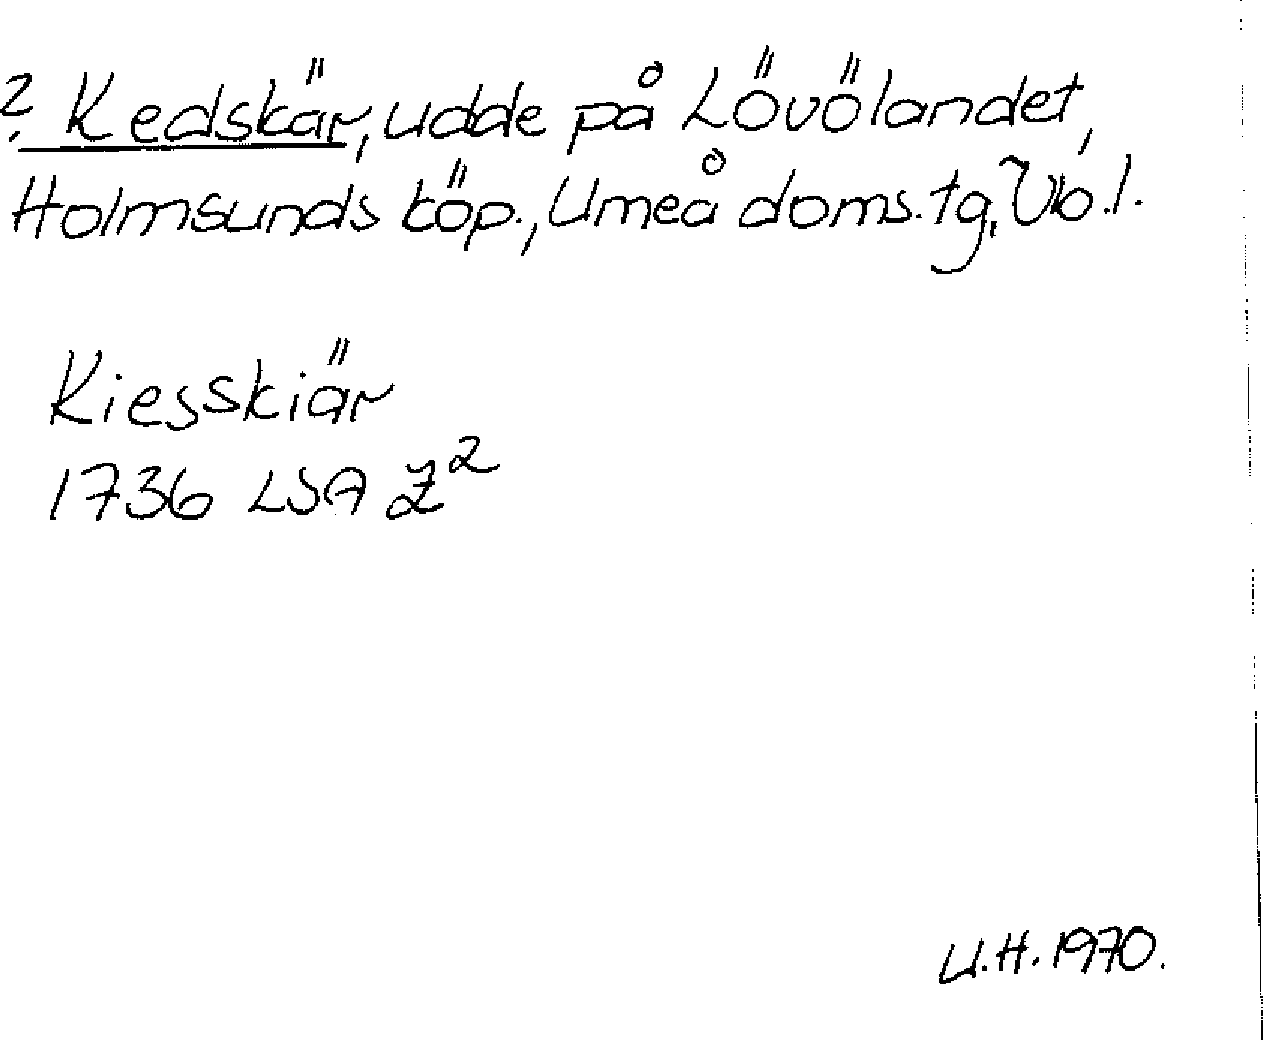 ? Kedskär, udde på Lövölandet,
Holmsunds köp., Umeå doms. tg, Vb. l.
Kiesskiär
1736 LSA Z²
U.H. 1970.